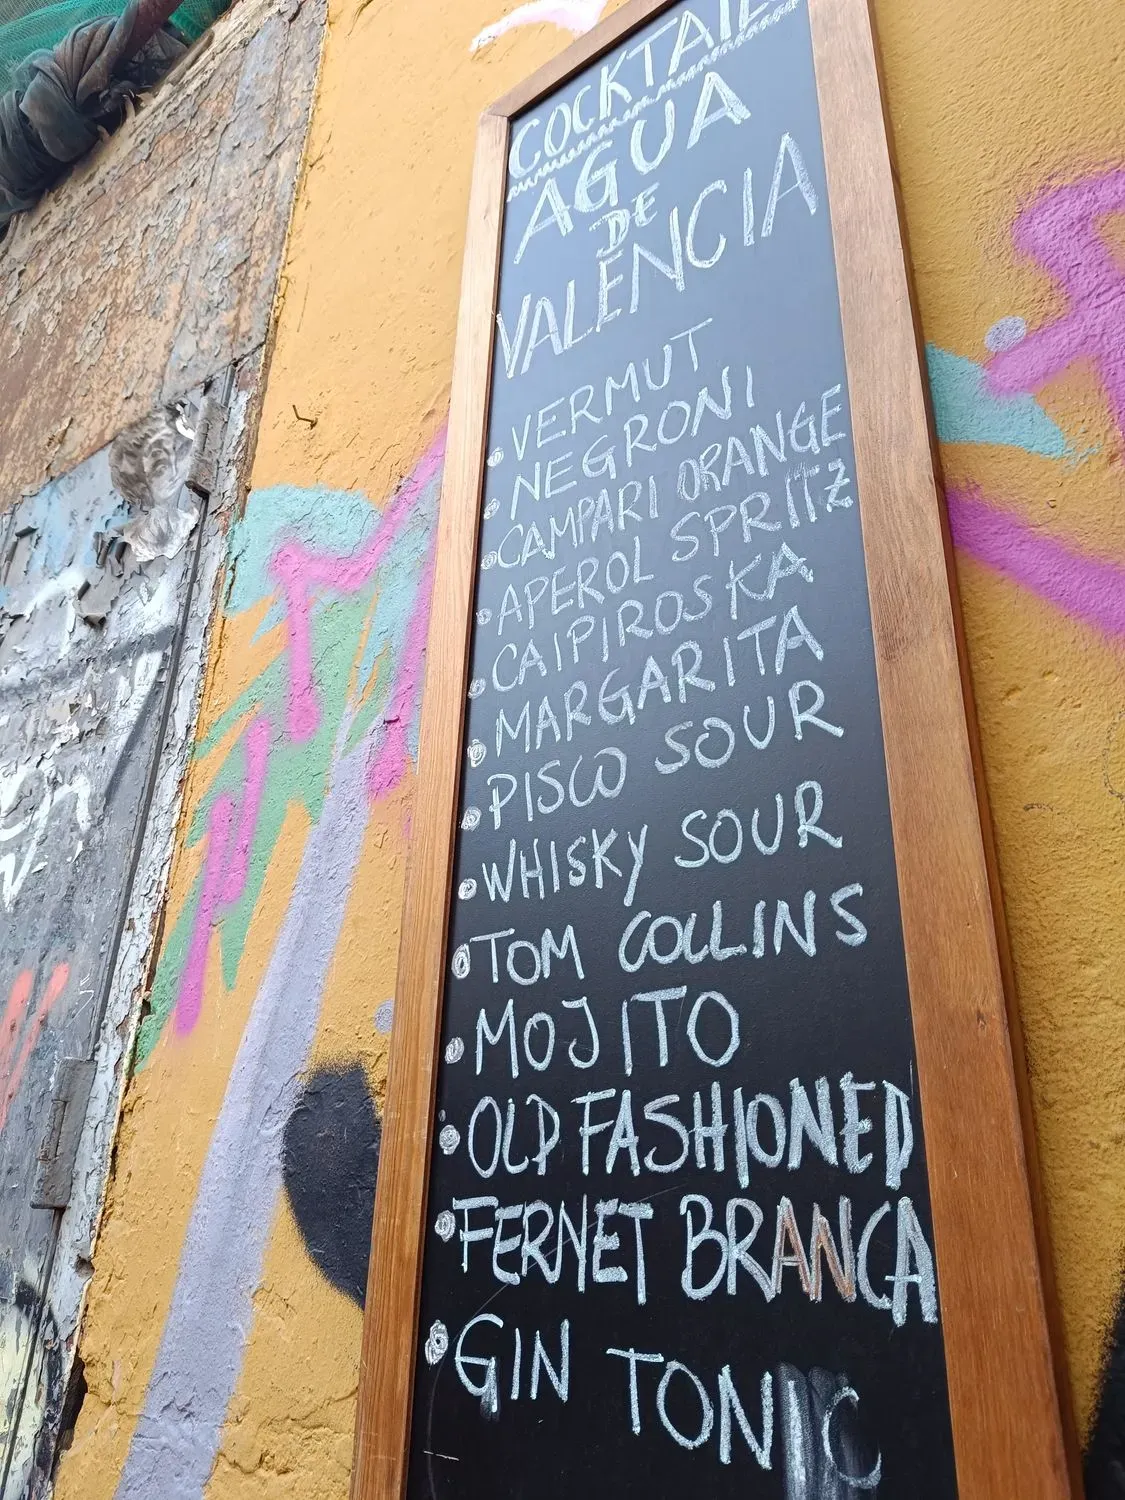 COCKTAIL
AGUA
DE
VALENCIA
VERMUT
NEGRONI
CAMPARI ORANGE
APEROL SPRITZ
CAIPIROSKA
MARGARITA
PISCO SOUR
WHISKY SOUR
TOM COLLINS
MOJITO
OLD FASHIONED
FERNET BRANCA
GIN TONIC